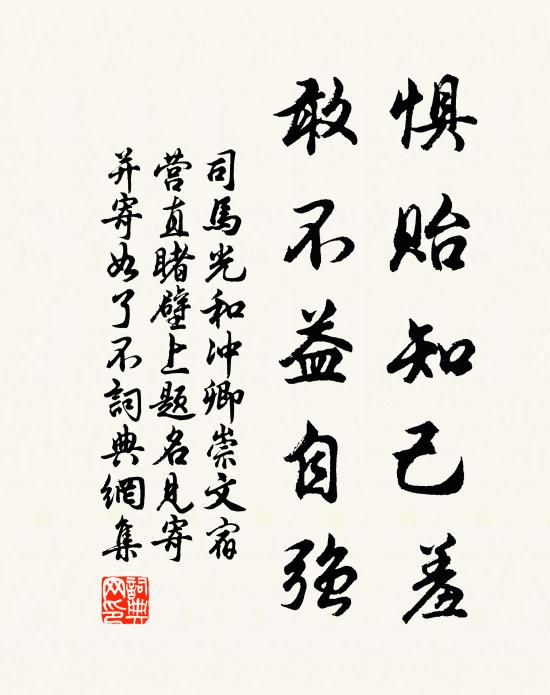 惧贻知己羞
敢不益自强
司馬光和冲卿崇文宿
营直睹壁上题名见寄
并寄如了不詞典網集
詞典網印